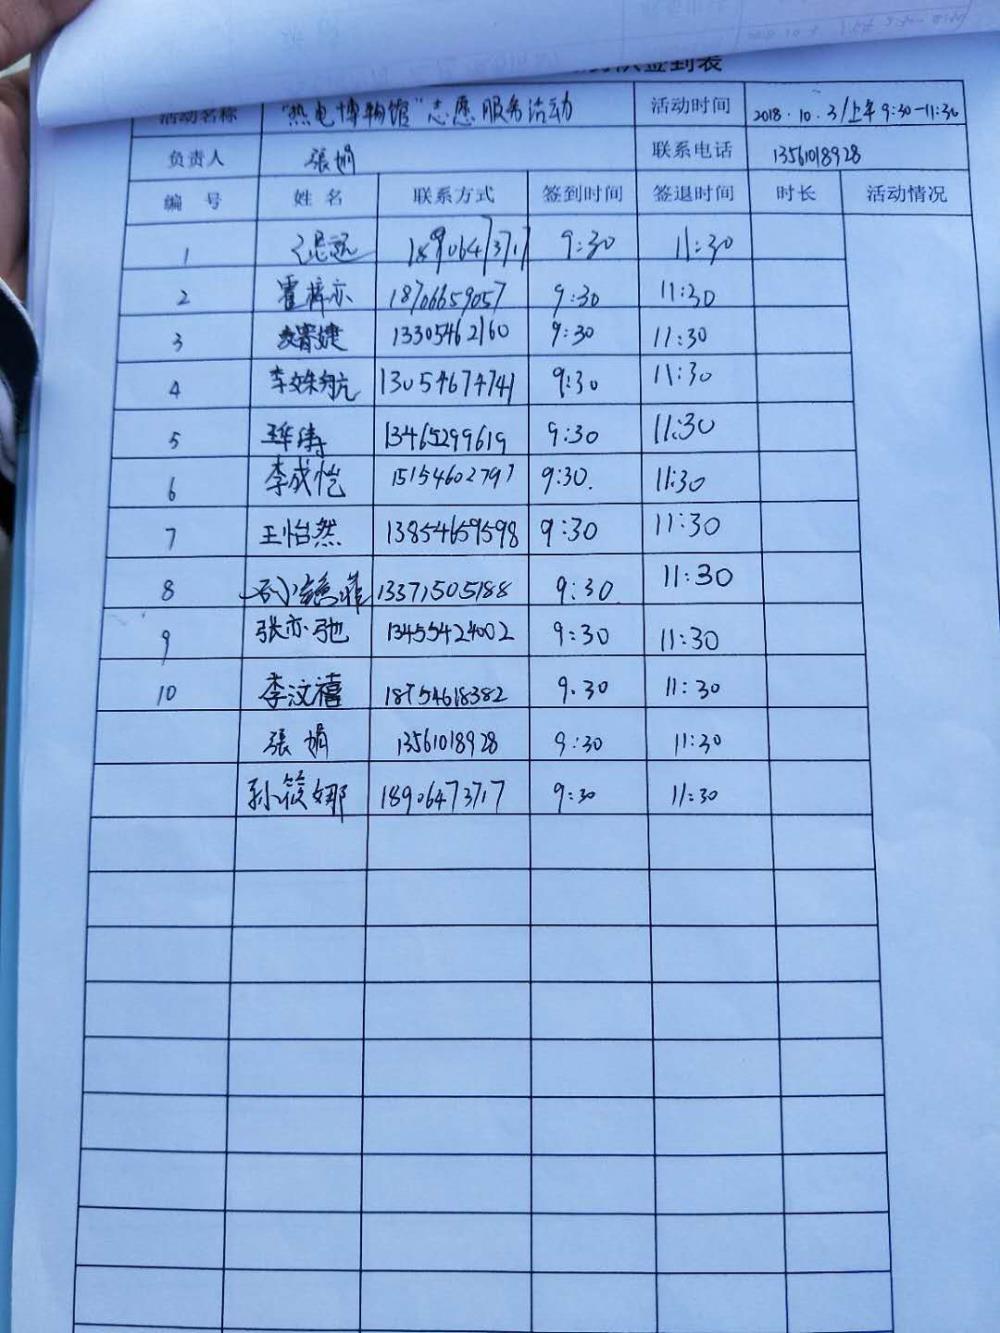 签到表
活动名称 "热电博物馆"志愿服务活动 活动时间 2018.10.3/上午9:30-11:30
负责人 張娟 联系电话 13561018928
编 号 姓 名 联系方式 签到时间 签退时间 时长 活动情况
1 18906473717 9:30 11:30
2 霍梓亦 18706659057 9:30 11:30
3 13305462160 9:30 11:30
4 李姝航 13054674741 9:30 11:30
5 13465299619 9:30 11:30
6 李成恺 15154602797 9:30. 11:30
7 王怡然 13854659598 9:30 11:30
8 13371505188 9:30 11:30
9 张亦弛 13455424002 9:30 11:30
10 李汶禧 18754618382 9.30 11:30
張 娟 13561018928 9:30 11:30
孙筱娜 18906473717 9:30 11:30